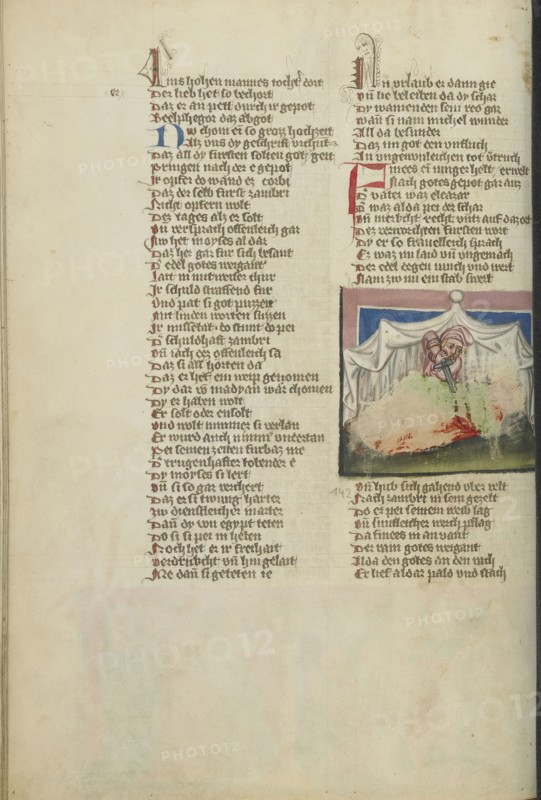 Ains hohen mannes tocht' dort
Der lieb het so bechort
Daz er an pett durch ir gepot
Beelphegor daz abgot
Nw chom ei so grozz hochzeit
Alz vns dy geschrift vrchūt
Daz all dy fursten solten got geit
Pringen nach der e gepot
Ir opfer do ward ez corbi
Daz der selb furst zambri
Nicht opfern wolt
Der tages alz er solt
Vn̄ versprach offenleich gar
Nw het moyses al dar
Daz her gar fur sich besant
D' edel gotes weigant
Jait in mit weiser chur
Ir schuld straffend fur
Vnd pat si got puzzen
Mit linden worten suzzen
Ir missetat do stunt do pei
D' schuldhaft zambri
Vn̄ iach der offenleich sa
Daz si all horten da
Daz er het ein weip genomen
Dy dar vo madyan war chomen
Dy er haben wolt
Er solt oder ensolt
Vnd wolt nimmer si verlan
Er wurd auch nimm' vndertan
Pei seinen zeiten furbaz me
D' trugenhafter tobender e
Dy moyses si lert
Vn̄ si so gar verchert
Daz er si twung harter
Zw dienstleicher marter
Dan̄ dy von egypt teten
Do si si pei in heten
Noch het er ir frechait
Verdrukcht vn̄ hin gelait
Me dan̄ si geteten ie
An vrlaub er dann gie
Vn̄ lie beleiben da dy schar
Dy wainenden sein reo gar
Wan si nam michel wunder
All da besunder
Daz im got den vnfuch
An vngewonleichen tot v'truch
Finees ei iunger helt erwelt
Nach gotes gepot gar auz
D' vater waz eleazar
D' waz alda pei der schar
Vn̄ merkcht recht vntz auf daz ort
Dez verworchten fursten wort
Dy er so frauelleich sprach
Ez waz im laid vn̄ vngemach
Der edel degen iunch vnd wert
Nam zw im ein stab swert
142
Vn̄ hub sich gahend vber velt
Nach zambri in sein gezelt
Do er pei seinem weib lag
Vn̄ suntleicher werch pflag
Da finees in an vant
Der rain gotes weigant
Alda den gotes an den rach
Er lief al dar pald vnd stach
PHOTO12